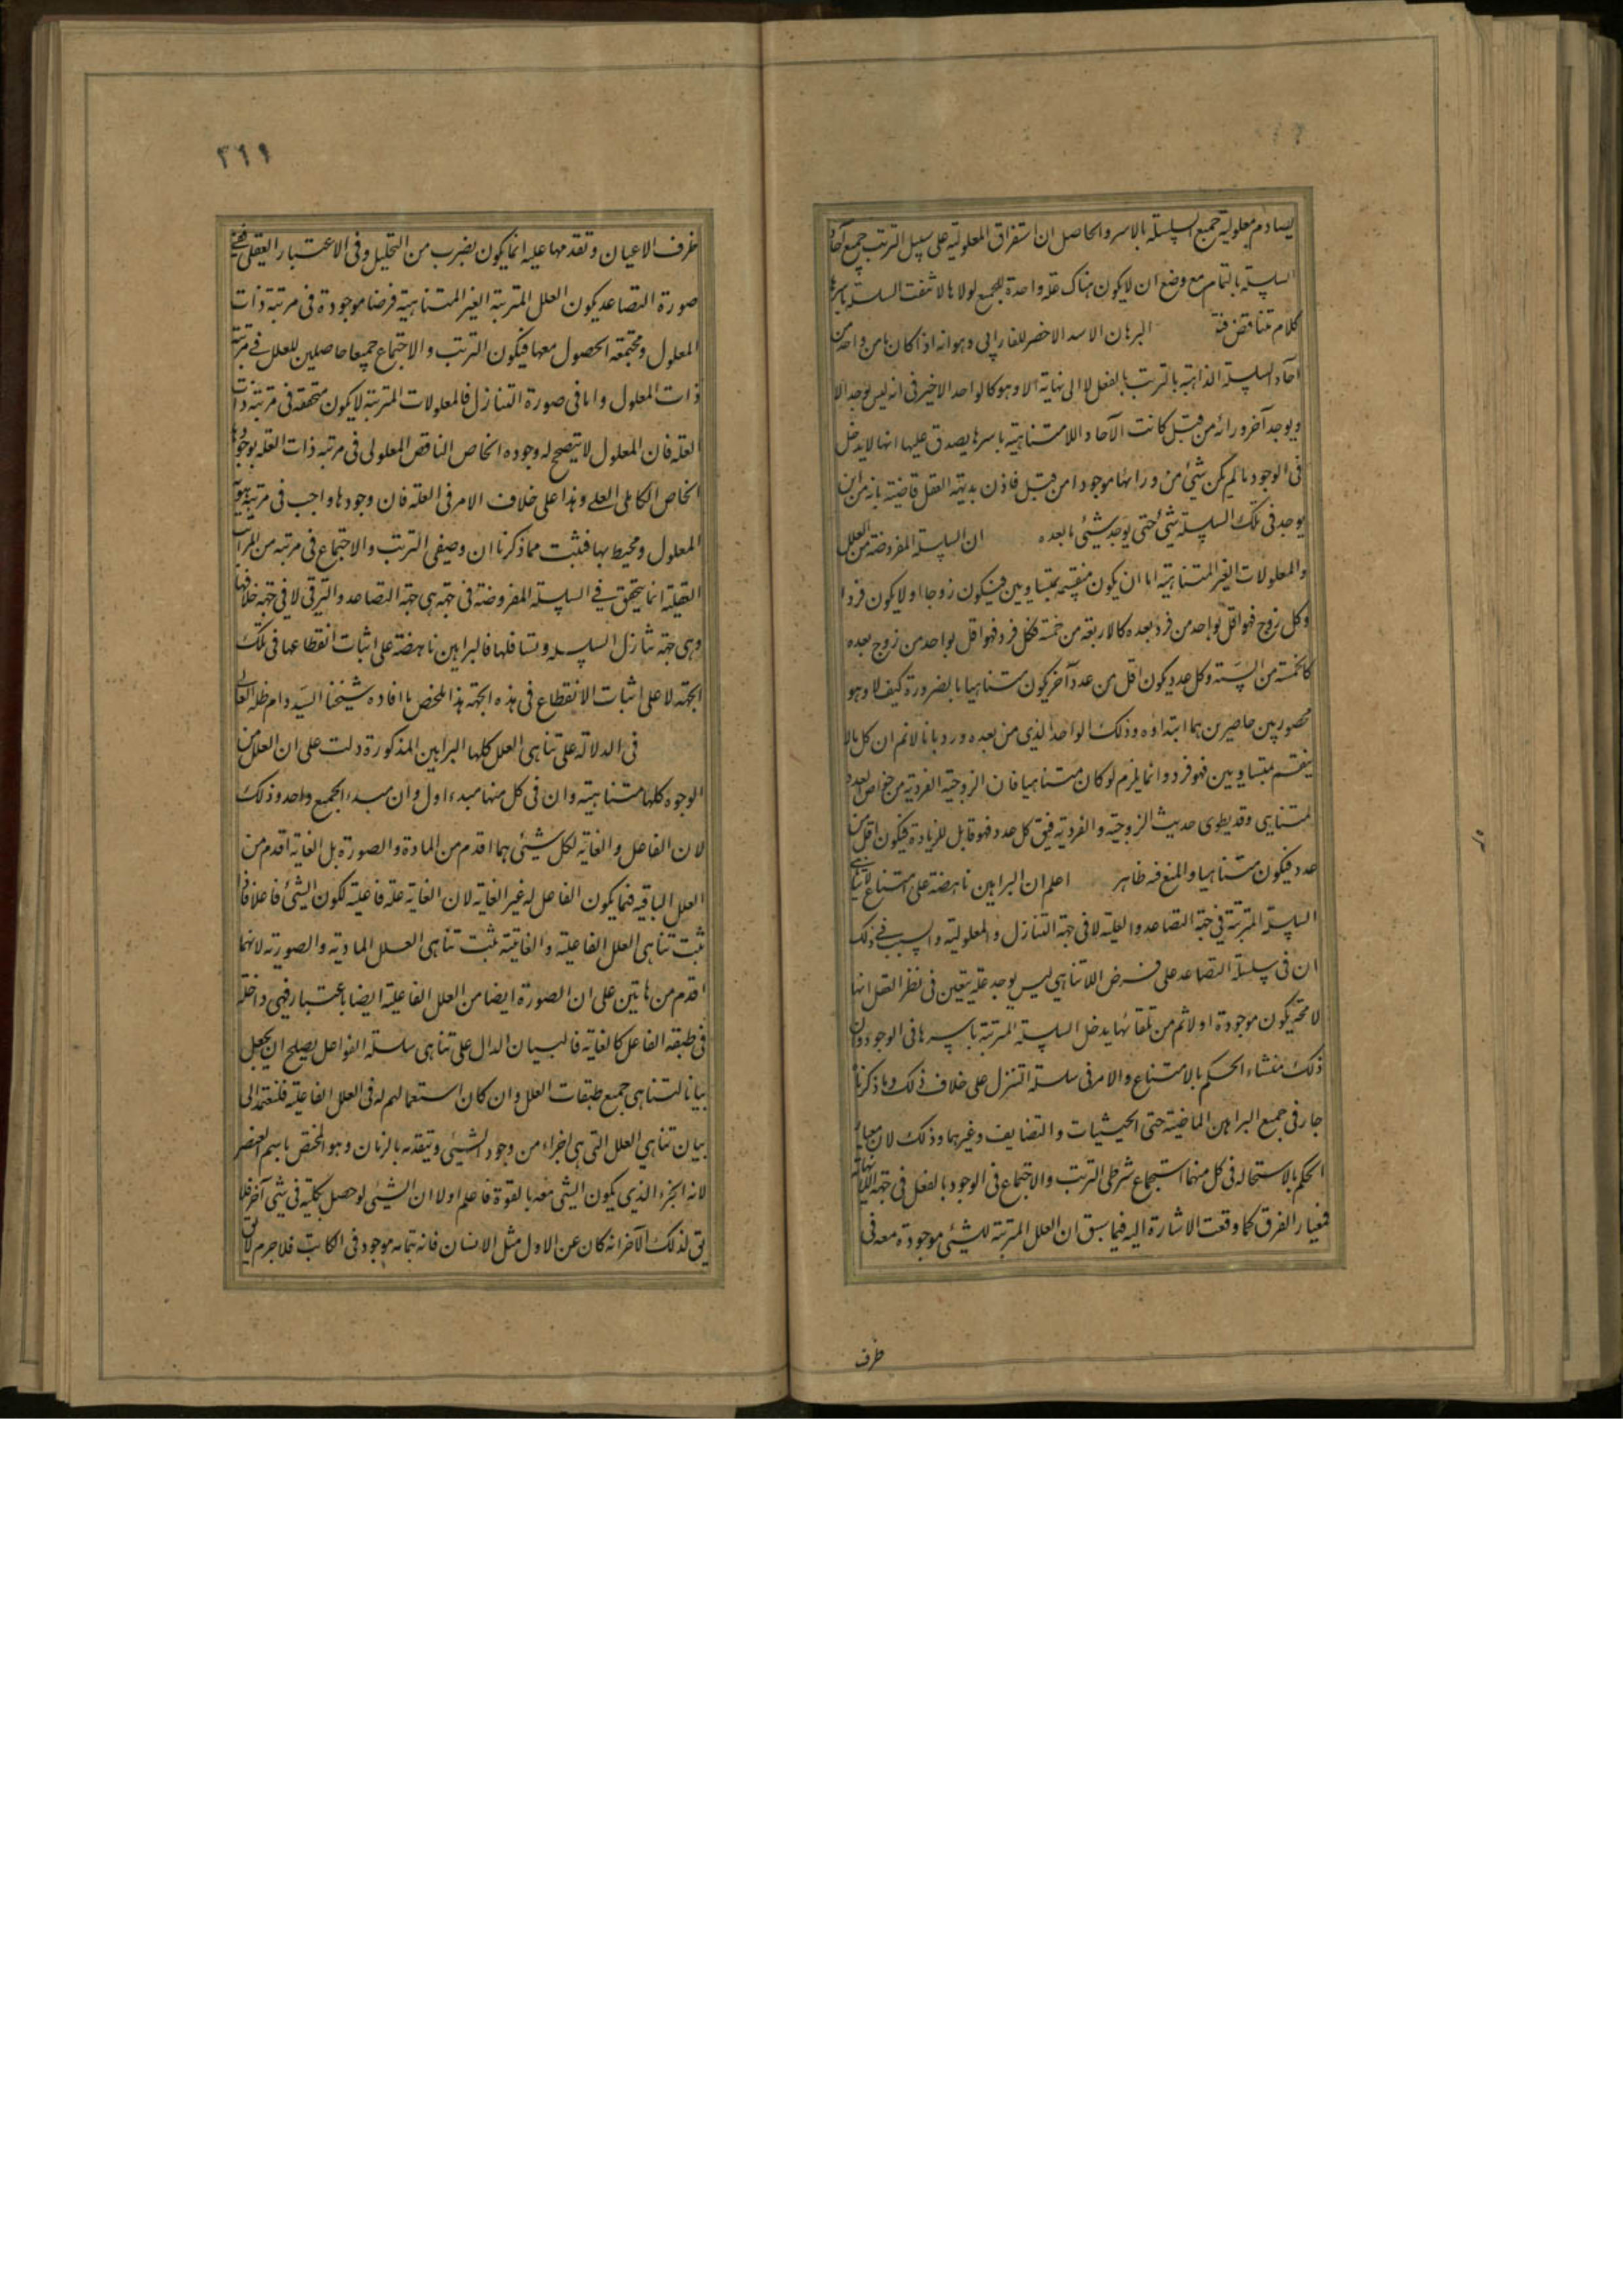 يصادم معلولية جميع السلسلة بالاسر والحاصل ان استغراق المعلولية على سبيل الترتب جميع آحاد
السلسلة بالتمام مع وضع ان لا يكون هناك علة واحدة للجميع لولاها لانتفت السلسلة باسرها
كلام متناقض فة البرهان الاسد الاخصر للفارابي وهو انه اذا كان ما من واحد من
آحاد السلسلة الذاهبة بالترتب بالفعل لا الى نهاية الا وهو كالواحد الاخير في انه ليس يوجد الا
ويوجد آخر ورائه من قبل كانت الآحاد اللامتناهية باسرها يصدق عليها انها لا يدخل
فى الوجود ما لم يكن شيئ من ورائها موجودا من قبل فاذن بديهة العقل قاضية بانه من اين
يوجد فى تلك السلسلة شيئ حتى يوجد شيئ ما بعده ان السلسلة المفروضة من العلل
والمعلولات الغير المتناهية اما ان يكون منقسمة بمتساويين فيكون زوجا او لا يكون فردا
وكل زوج فهو اقل بواحد من فرد بعده كالاربعة من خمسة فكل فرد فهو اقل بواحد من زوج بعده
كالخمسة من الستة وكل عدد يكون اقل من عدد آخر يكون متناهيا بالضرورة كيف لا وهو
محصور بين حاصرين هما ابتداؤه وذلك الواحد الذي من بعده ورد بانا لا نم ان كل ما لا
ينقسم بمتساويين فهو فرد وانما يلزم لو كان متناهيا فان الزوجية الفردية من خواص العدد
المتناهي وقد يطوى حديث الزوجية والفردية فيق كل عدد فهو قابل للزيادة فيكون اقل من
عدد فيكون متناهيا والمنع فيه ظاهر اعلم ان البراهين ناهضة على امتناع لا تناهى
السلسلة المترتبة في جهة التصاعد والعلية لا في جهة التنازل والمعلولية والسبب في ذلك
ان فى سلسلة التصاعد على فرض اللاتناهي ليس يوجد علة يتعين فى نظر العقل انها
لا محة يكون موجودة اولا ثم من تلقائها يدخل السلسلة المترتبة باسرها فى الوجود وان
ذلك منشاء الحكم بالامتناع والامر فى سلسلة التنزل على خلاف ذلك وما ذكرناه
جار فى جميع البراهين الماضية حتى الحيثيات والتضايف وغيرهما وذلك لان معيار
الحكم بالاستحالة فى كل منهما استجماع شرطى الترتب والاجتماع فى الوجود بالفعل فى جهة اللانهاية
فمعيار الفرق كما وقعت الاشارة اليه فيما سبق ان العلل المترتبة للشيئى موجودة معه فى
ظرف
٢٦٦
ظرف الاعيان وتقدمها عليه انما يكون بضرب من التحليل وفى الاعتبار العقلى ففى
صورة التصاعد يكون العلل المترتبة الغير المتناهية فرضا موجودة فى مرتبة ذات
المعلول ومجتمعة الحصول معها فيكون الترتب والاجتماع جميعا حاصلين للعلل في مرتبة
ذات المعلول واما فى صورة التنازل فالمعلولات المترتبة لا يكون متحققة فى مرتبة ذات
العلة فان المعلول لا يتصحح له وجوده الخاص الناقص المعلولى فى مرتبة ذات العلة بوجودها
الخاص الكامل العلى وهذا على خلاف الامر فى العلة فان وجودها واجب فى مرتبة هوية
المعلول ومحيط بها فثبت مما ذكرنا ان وصفى الترتب والاجتماع فى مرتبة من المراتب
العقلية انما يتحقق في السلسلة المفروضة فى جهة هى جهة التصاعد والترقى لا فى جهة خلافها
وهى جهة تنازل السلسلة وتسافلها فالبراهين ناهضة على اثبات انقطاعها فى تلك
الجهة لا على اثبات الانقطاع فى هذه الجهة هذا ملخص ما افاده شيخنا السيد دام ظله العالى
فى الدلالة على تناهى العلل كلها البراهين المذكورة دلت على ان العلل من
الوجوه كلها متناهية وان فى كل منها مبدء اول وان مبدء الجميع واحد وذلك
لان الفاعل والغاية لكل شيئى هما اقدم من المادة والصورة بل الغاية اقدم من
العلل الباقية فيما يكون الفاعل له غير الغاية لان الغاية علة فاعلية لكون الشيئ فاعلا فاذا
ثبت تناهى العلل الفاعلية والغائية ثبت تناهى العلل المادية والصورية لانهما
اقدم من هاتين على ان الصورة ايضا من العلل الفاعلية ايضا باعتبار فهى داخلة
فى طبقة الفاعل كالغاية فالبيان الدال على تناهى سلسلة الفواعل يصلح ان يجعل
بيانا لتناهى جميع طبقات العلل وان كان استعمالهم له فى العلل الفاعلية فلنعمد الى
بيان تناهي العلل التى هى اجزاء من وجود الشيئى ويتقدمه بالزمان وهو المختص باسم العنصر
لانه الجزء الذي يكون الشيئ معه بالقوة فاعلم اولا ان الشيئى لو حصل بكليته فى شيئ آخر فلا
يق لذلك الآخر انه كان عن الاول مثل الانسان فانه بتمامه موجود فى الكاتب فلا جرم لا يق